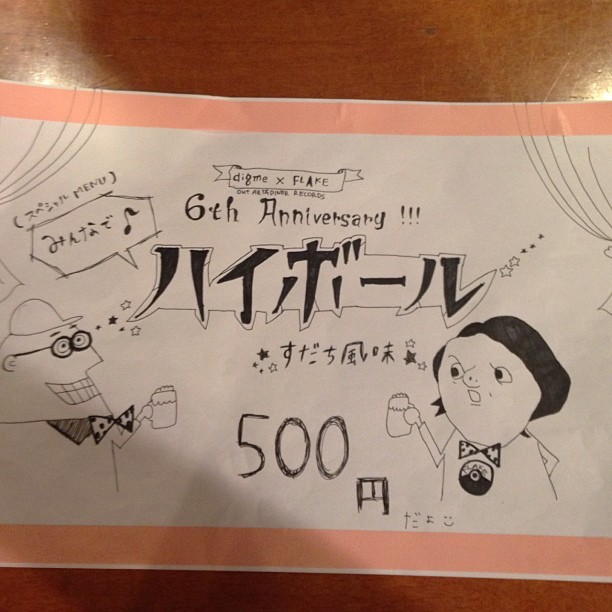 digme x FLAKE
OUT ART&DINER RECORDS
6th Anniversary !!!
(スペシャル MENU)
みんなで♪
ハイボール
すだち風味
500
円
だよ
FLAKE